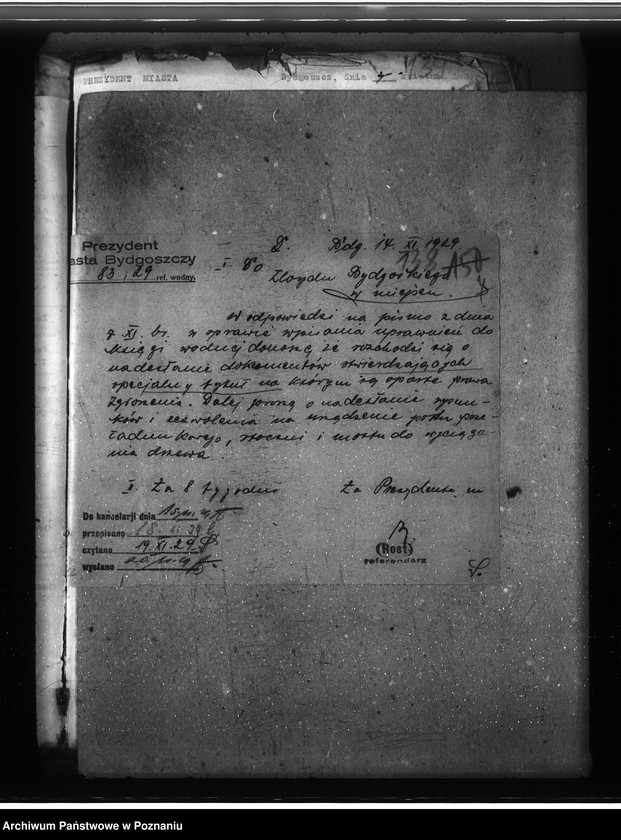 PREZYDENT MIASTA
Bydgoszcz, dnia
Prezydent
asta Bydgoszczy
83/29 ref. wodny.
Bdg. 14. XI. 1929.
138 150
I Do
Lloydu Bydgoskiego
w miejscu.
W odpowiedzi na pismo z dnia
7 XI. br. w sprawie wpisania uprawnień do
księgi wodnej donoszę że rozchodzi się o
nadesłanie dokumentów stwierdzających
specjalny tytuł na którym są oparte prawa
zgłoszenia. Dalej proszę o nadesłanie rysun-
ków i zezwolenia na urządzenie portu prze-
ładunkowego, stoczni i mostu do wyciąga-
nia drzewa.
II Za 8 tygodni
Za Prezydenta m
Do kancelarji dnia
przepisano 18. XI. 29
czytano 19. XI. 29
wysłano
(Rost)
referendarz
Archiwum Państwowe w Poznaniu